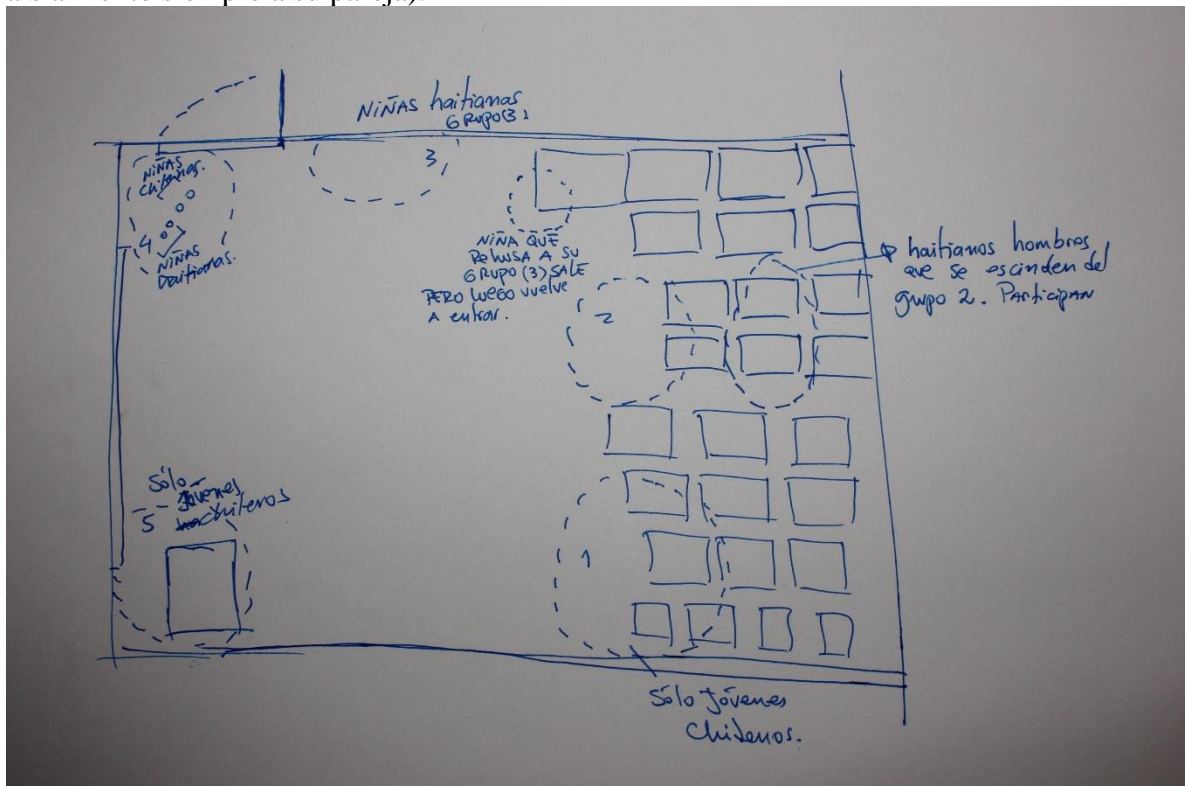 NIÑAS haitianas
GRUPO (3)
3
NIÑAS
chilenas.
4
NIÑAS
haitianas.
NIÑA QUE
REHUSA A SU
GRUPO (3) SALE
PERO LUEGO VUELVE
A entrar.
haitianos hombres
que se escinden del
grupo 2. Participan
2
Sólo
Jóvenes
5
chilenos
1
Sólo Jóvenes
Chilenos.